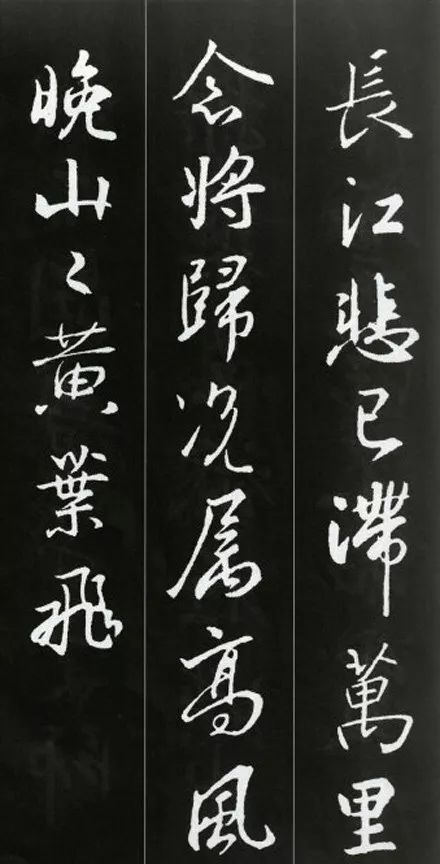 長江悲已滯萬里
念將歸况属高風
晚山〻黄葉飛